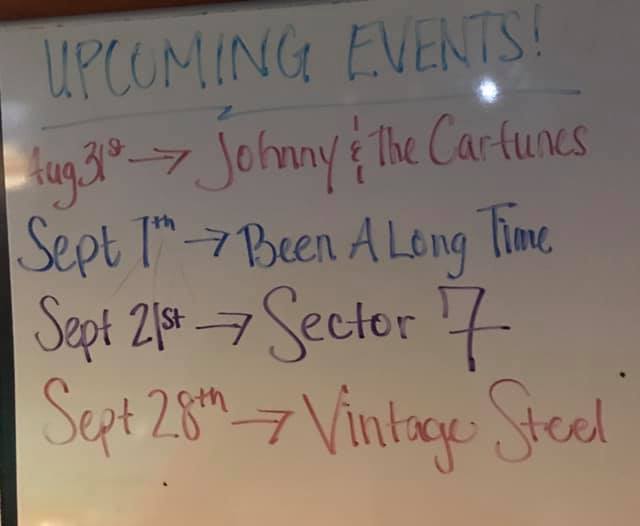 UPCOMING EVENTS!
Aug 31st → Johnny & The Cartunes
Sept 7th → Been A Long Time
Sept 21st → Sector 7
Sept 28th → Vintage Steel